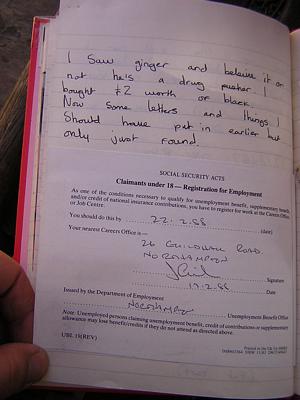 I saw ginger and beleive it or
not he's a drug pusher. I
bought £2 worth of black.
Now some letters and things I
should have put in earlier but
only just found.
SOCIAL SECURITY ACTS
Claimants under 18 — Registration for Employment
As one of the conditions necessary to qualify for unemployment benefit, supplementary benefit,
and/or credit of national insurance contributions, you have to register for work at the Careers Office
or Job Centre.
You should do this by 22.2.88 (date)
Your nearest Careers Office is—
26 GUILDHALL ROAD
NORTHAMPTON
Signature
17.2.88 Date
Issued by the Department of Employment
NORTHAMPTON Unemployment Benefit Office
Note: Unemployed persons claiming unemployment benefit, credit of contributions or supplementary
allowance may lose benefit/credits if they do not attend as directed above.
UBL 19(REV)